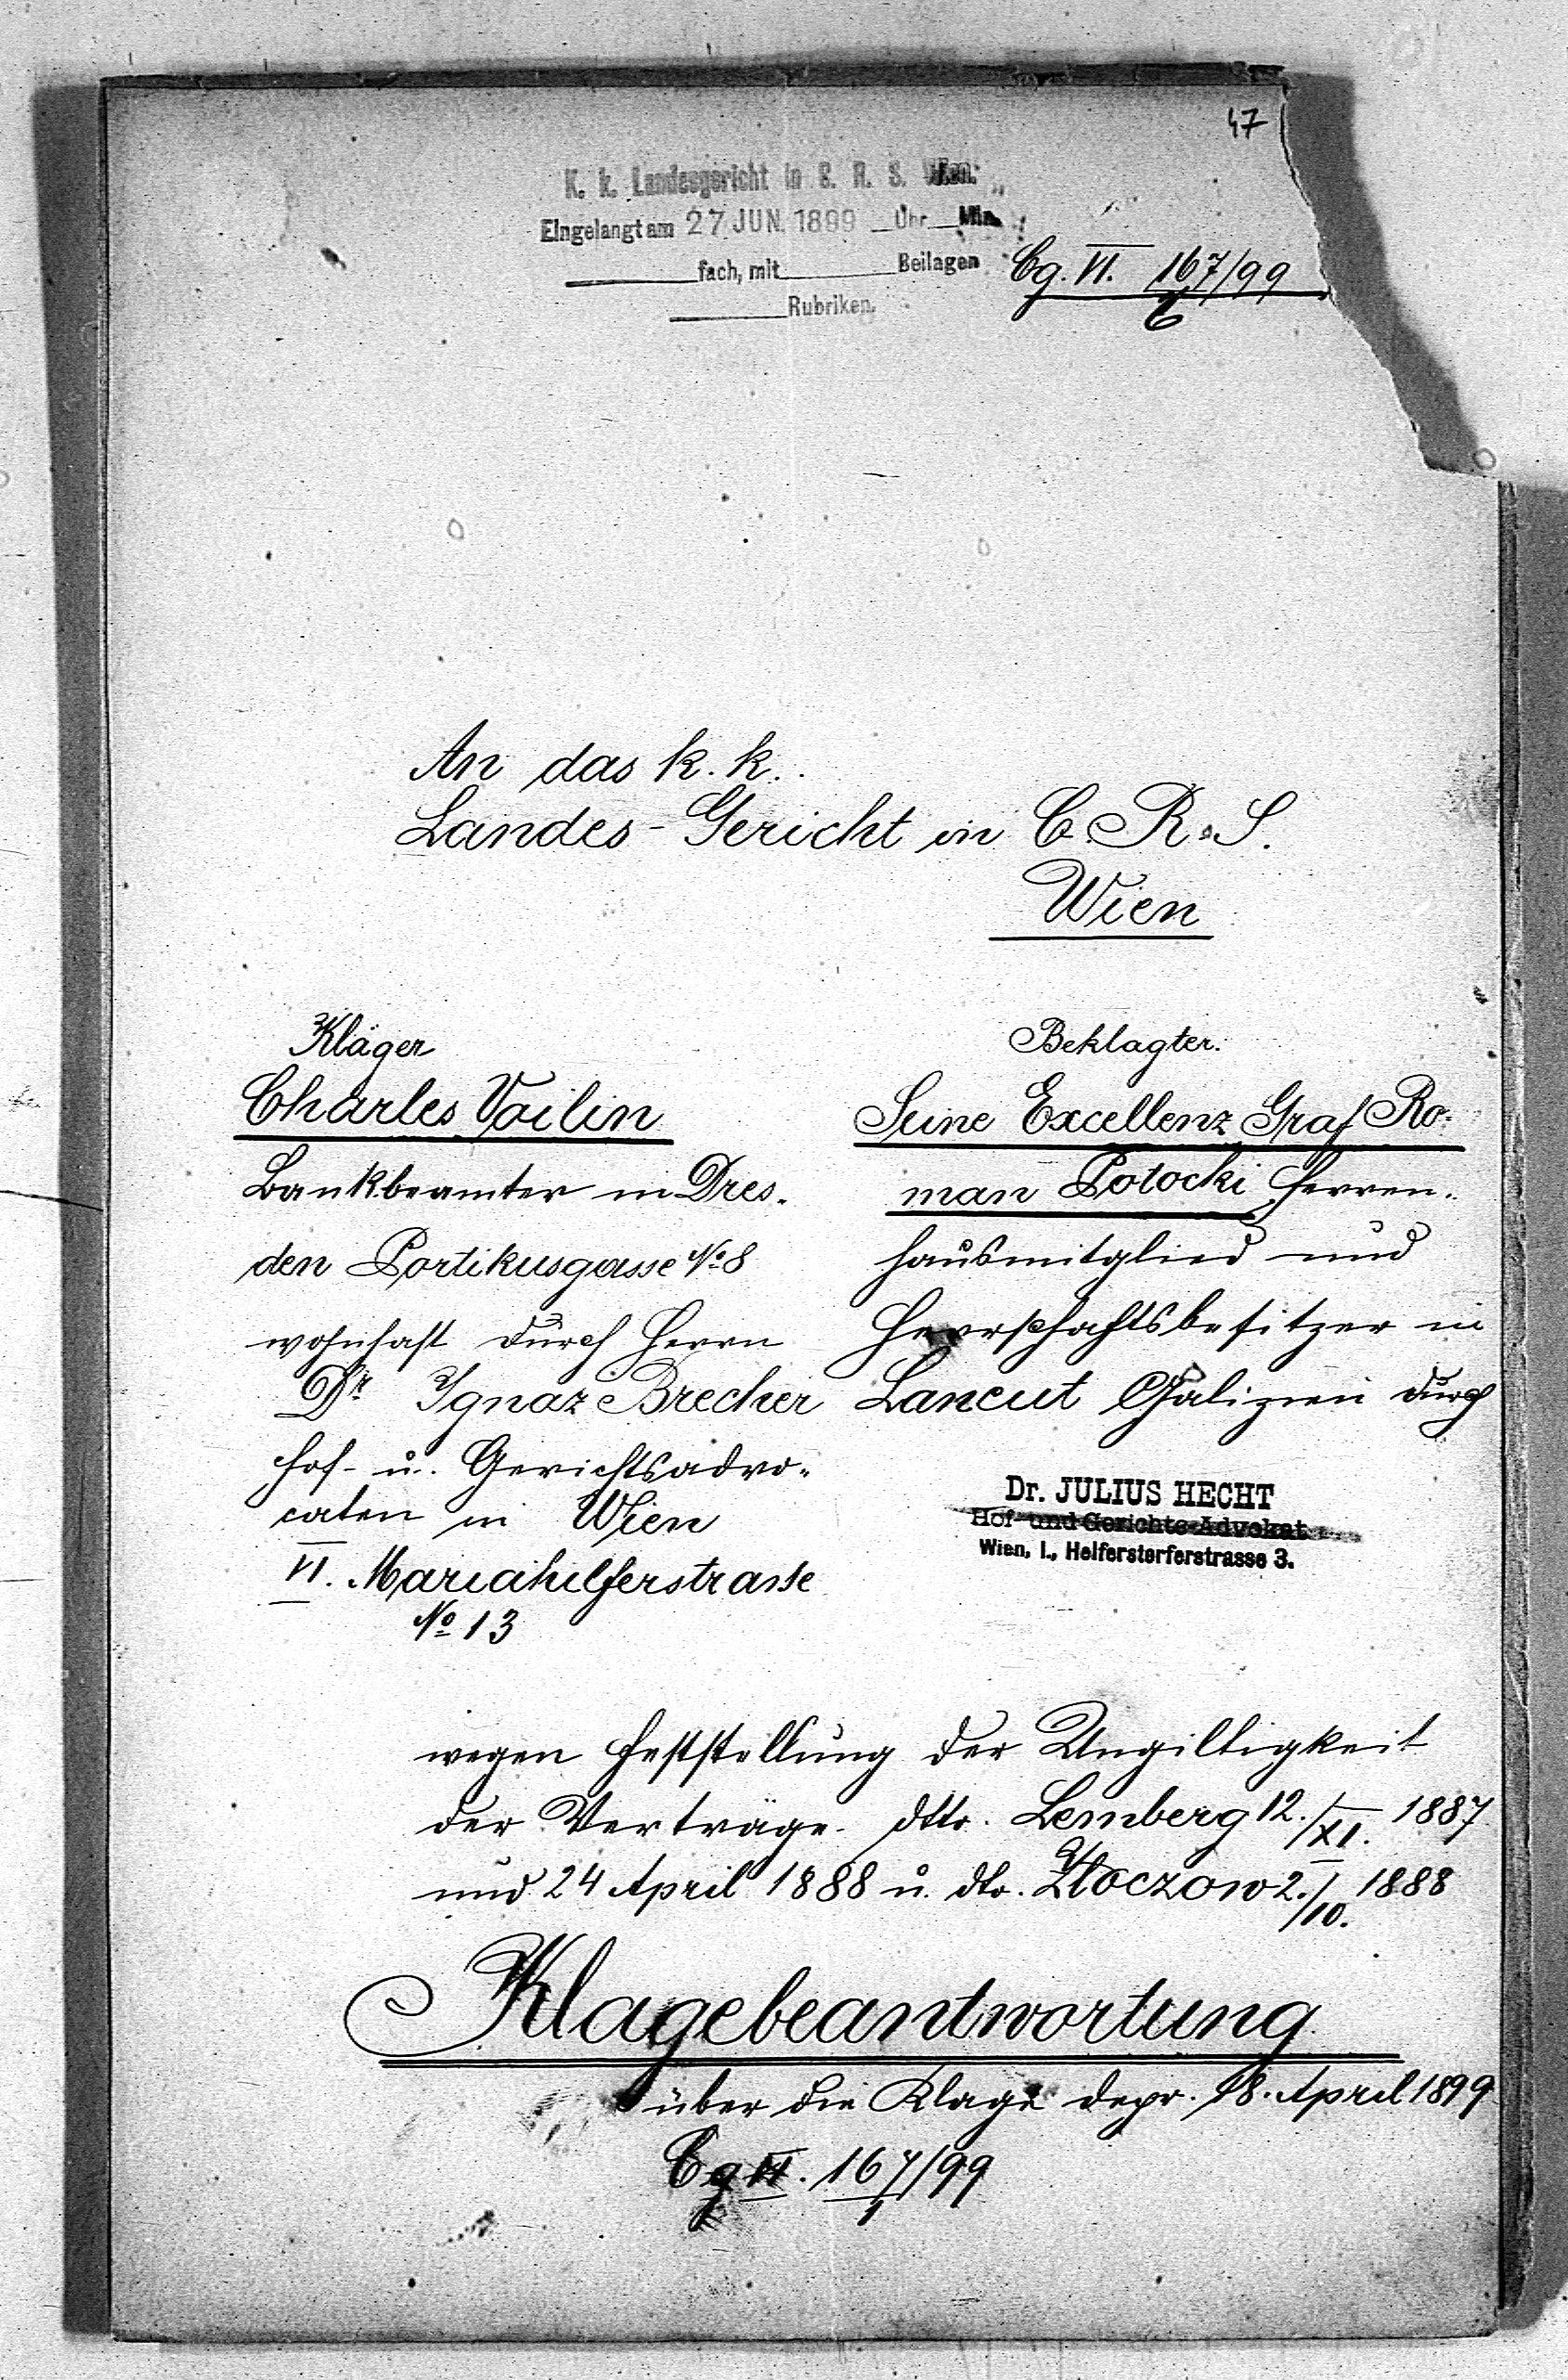 47
K. k. Landesgericht in C. R. S. Wien.
Eingelangt am 27 JUN. 1899 Uhr Min.
fach, mit Beilagen
Rubriken.
Cg. VI. 167/99
6
An das k. k.
Landes-Gericht in C. R. S.
Wien
Kläger
Charles Voilin
Bankbeamter in Dres-
den Portikusgasse No 8
wohnhaft durch Herrn
Dr Ignaz Brecher
Hof- u. Gerichtsadvo-
caten in Wien
VI. Mariahilferstrasse
No 13
Beklagter.
Seine Excellenz Graf Ro-
man Potocki Herren-
hausmitglied und
Herrschaftsbesitzer in
Lancut Galizien durch
Dr. JULIUS HECHT
Hof- und Gerichts-Advokat
Wien, I., Helferstorferstrasse 3.
wegen Feststellung der Ungiltigkeit
der Verträge dtto. Lemberg 12./XI. 1887
und 24 April 1888 u. dto. Złoczow 2./10. 1888
Klagebeantwortung
über die Klage depr. 18. April 1899
Cg VI. 167/99
1